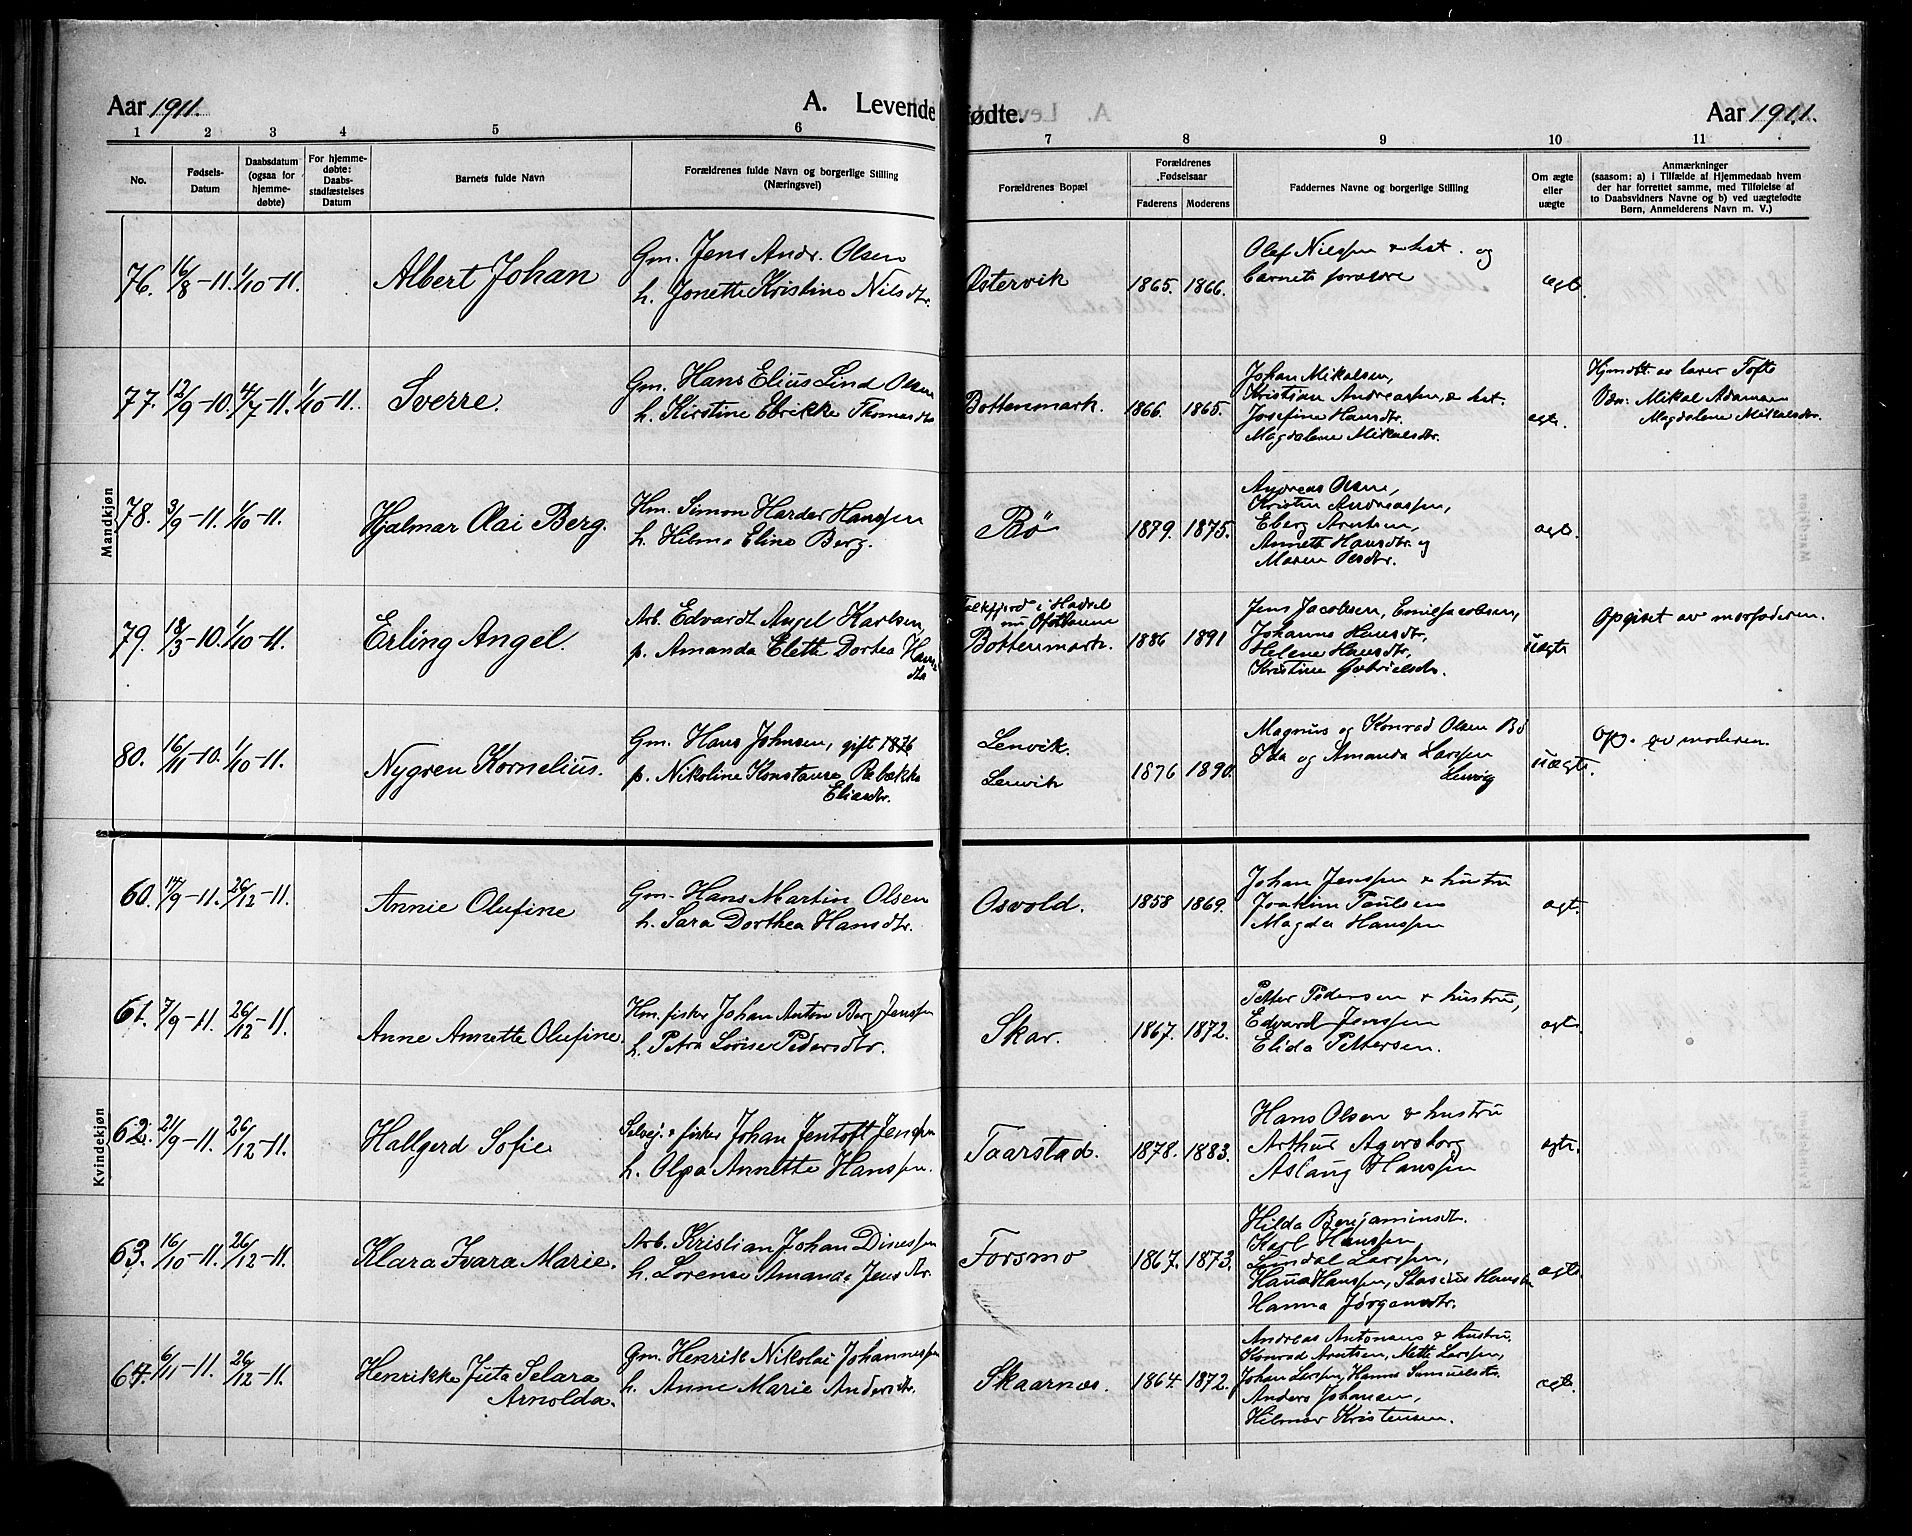 Aar 1911. A. Levende fødte. Aar 1911.
1 2 3 4 5 6 7 8 9 10 11
No.
Fødsels-
Datum
Daabsdatum
(ogsaa for
hjemme-
døbte)
For hjemme-
døbte:
Daabs-
stadfæstelses
Datum
Barnets fulde Navn
Forældrenes fulde Navn og borgerlige Stilling
(Næringsvei)
Forældrenes Bopæl
Forældrenes
Fødselsaar
Faderens Moderens
Faddernes Navne og borgerlige Stilling
Om ægte
eller
uægte
Anmærkninger
(saasom: a) i Tilfælde af Hjemmedaab hvem
der har forrettet samme, med Tilføielse af
to Daabsvidners Navne og b) ved uægtefødte
Børn, Anmelderens Navn m. V.)
Mandkjøn
76. 16/8-11. 1/10-11. Albert Johan
Gm. Jens Andr. Olsen
h. Jonette Kristine Nilsdtr.
Østervik 1865. 1866.
Olaf Nilssen & hst. og
barnets forældre
ægte.
77. 12/9-10. 4/7-11. 1/10-11. Sverre.
Gm. Hans Elius Lind Olsen
h. Kirstine Ebrikke Thomasdtr
Bottenmark. 1866. 1865.
Johan Mikalsen,
Kristian Andreassen & hst.
Josefine Hansdtr.
Magdalene Mikalsdtr.
ægte.
Hjemdt. av lærer Tofte
Vdn: Mikal Adamsen
Magdalene Mikalsdtr.
78. 3/9-11. 1/10-11. Hjalmar Olai Berg.
Hm. Simon Harder Hanssen
h. Hilma Eline Berg.
Bø 1879. 1875.
Andreas Olsen,
Kristen Andreassen,
Eberg Arntsen,
Anneth Hansdtr. og
Maren Olsdtr.
ægte.
79. 18/3-10. 1/10-11. Erling Angel.
Arb. Edvardt Angel Karlsen,
p. Amanda Eleth Dortea Hansdtr
i Hadsel
nu Ofotbanen
Bottenmark. 1886 1891
Jens Jacobsen, Emil Jacobsen,
Johanna Hansdtr,
Helene Hansdtr.
Kristine Gabrielsdtr.
uægte
Opgivet av morfaderen.
80. 16/11-10. 1/10-11. Nygren Kornelius.
Gm. Hans Johnsen, gift 1876
p. Nikoline Konstanse Rebækka
Eliasdtr.
Lenvik.
Lenvik 1876 1890.
Magnus og Konrad Olsen Bø
Oda og Amanda Larssen
Lenvig
uægte.
Op. av moderen.
Kvindekjøn
60. 14/9-11. 26/12-11. Annie Olufine
Gm. Hans Martin Olsen
h. Sara Dorthea Hansdtr.
Osvold. 1858 1869.
Johan Jenssen & hustru
Joakim Paulsen
Magda Hanssen
ægt.
61. 7/9-11. 26/12-11. Anne Annette Olufine.
Hm. fisker Johan Anton Berg Jenssen
h. Petra Lovise Pedersdtr.
Skar. 1867. 1872.
Petter Pedersen & hustru,
Edvard Jenssen
Elida Pettersen.
ægte
62. 21/9-11. 26/12-11. Hallgerd Sofie
Selvej. & fisker Johan Jentoft Jenssen
h. Olga Annette Hanssen.
Taarstad. 1878. 1883.
Hans Olsen & hustru
Arthur Agersborg
Aslaug Hanssen
ægte.
63. 16/10-11. 26/12-11. Klara Ivara Marie.
Arb. Kristian Johan Dinessen
h. Lorense Amanda Jensdtr.
Forsmo 1867. 1873.
Hilda Benjaminsdtr.
Karl Hanssen,
Lundal Larssen,
Hanna Hanssen, Stasius Hanssen
Hanna Jørgensdtr.
ægte
64. 6/11-11. 26/12-11. Henrikke Juta Selara
Arnolda.
Gm. Henrik Nikolai Johannessen
h. Anne Marie Andersdtr.
Skaarnes. 1864. 1872.
Andreas Antonsen & hustru.
Konrad Arntsen, Mette Larssen,
Johan Larssen, Hanna Samuelsdtr.
Anders Johansen,
Hilmar Kristensen.
ægte.